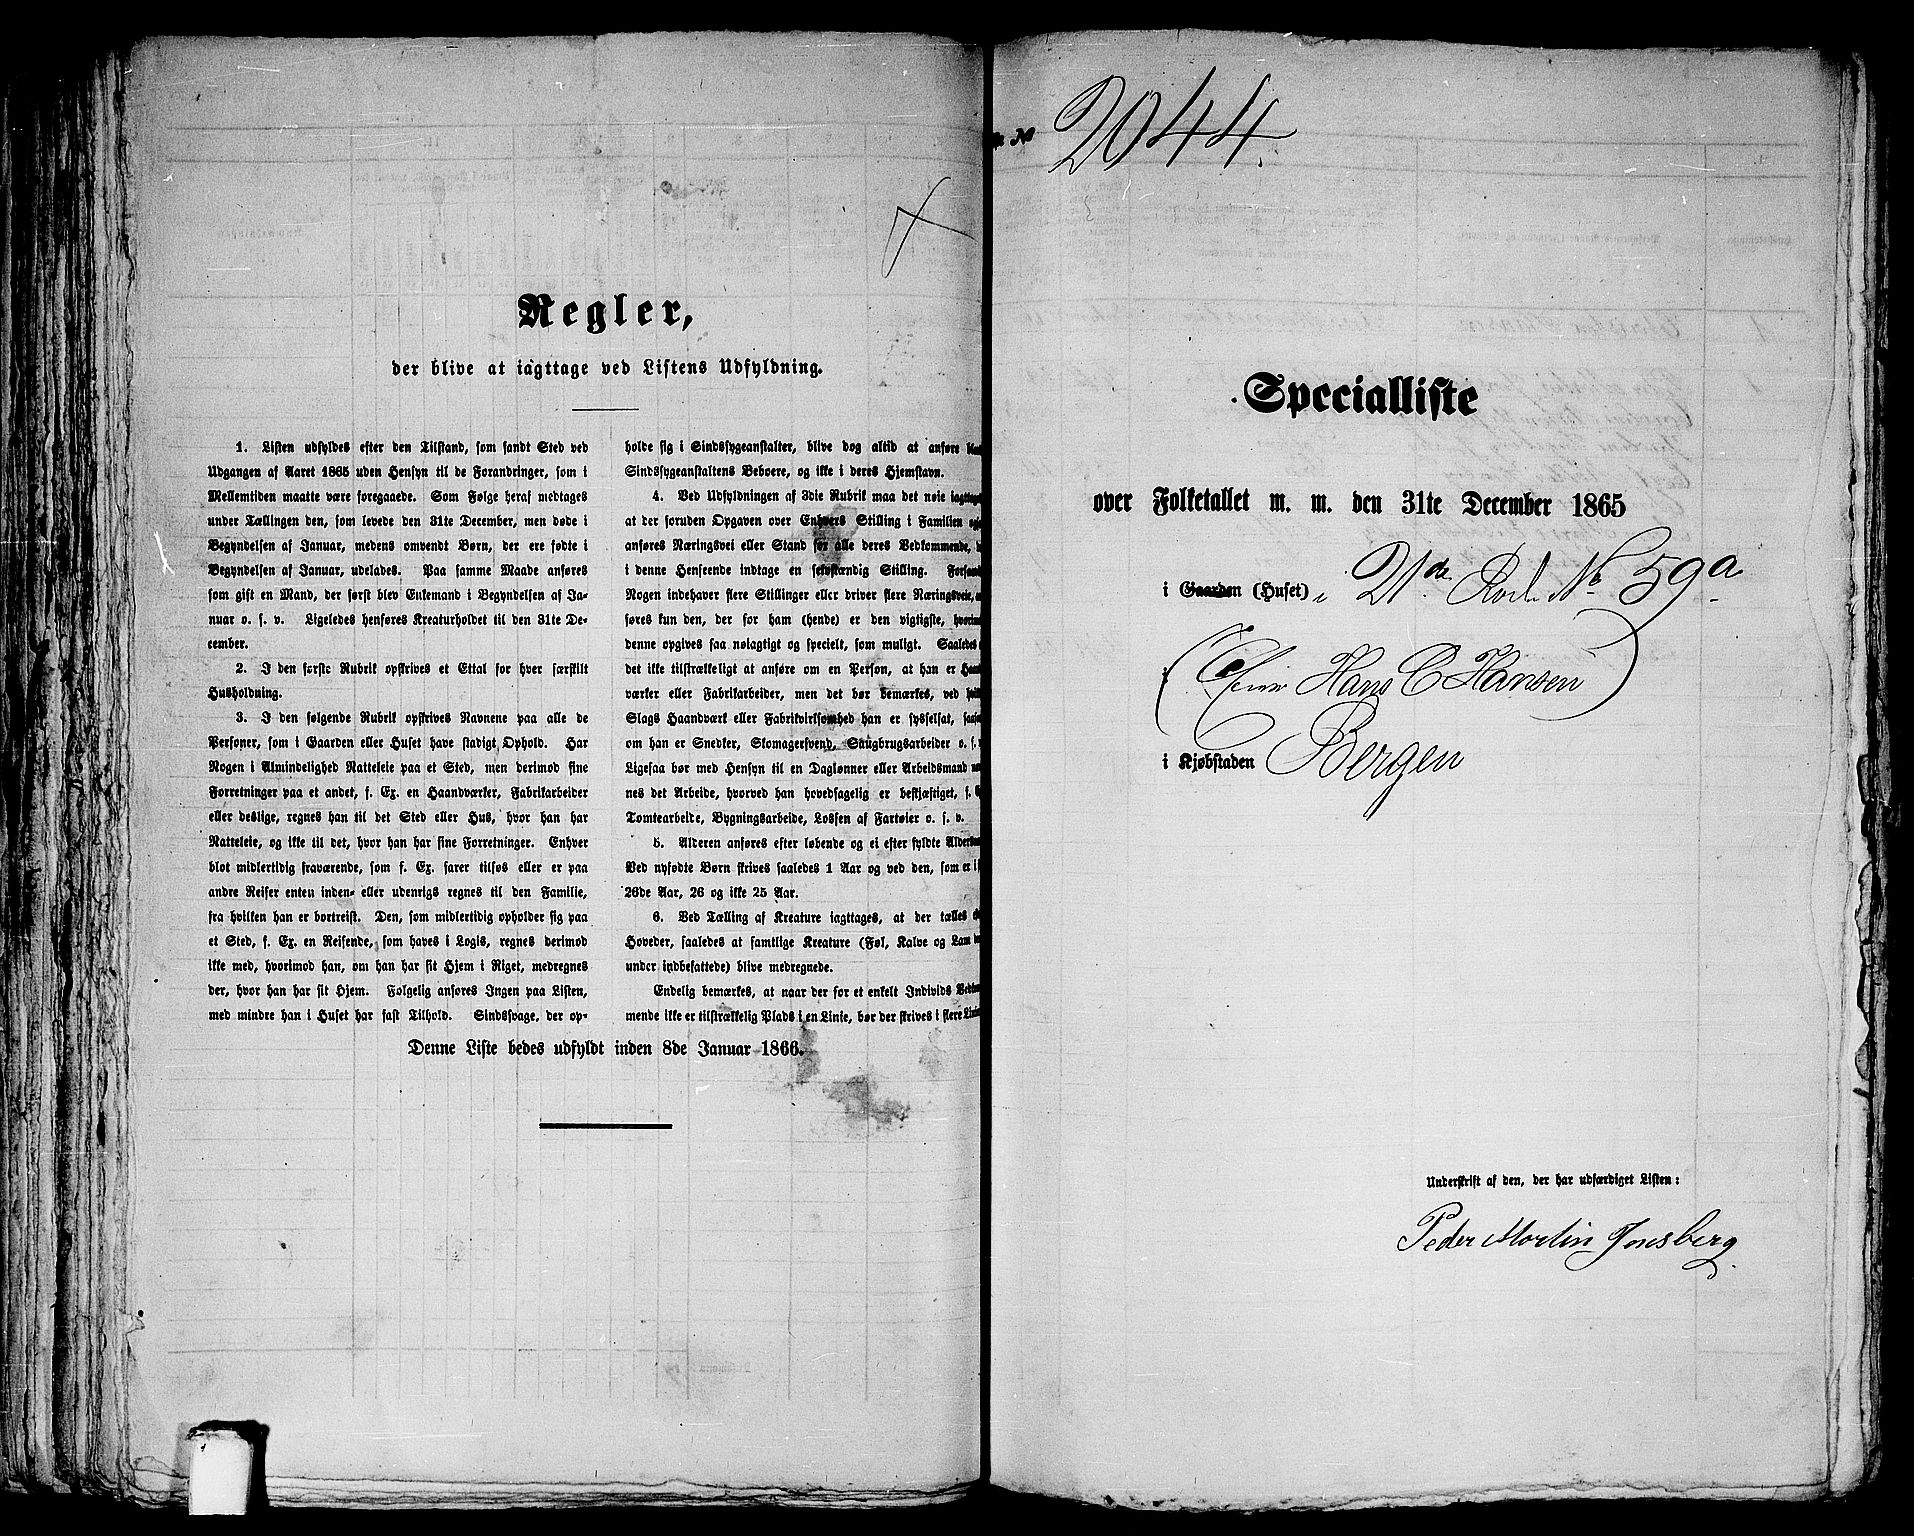 Regler,
der blive at iagttage ved Listens Udfyldning.
1. Listen udfyldes efter den Tilstand, som fandt Sted ved
Udgangen af Aaret 1865 uden Hensyn til de Forandringer, som i
Mellemtiden maatte være foregaaede. Som Følge heraf medtages
under Tællingen den, som levede den 31te December, men døde i
Begyndelsen af Januar, medens omvendt Børn, der ere fødte i
Begyndelsen af Januar, udelades. Paa samme Maade anføres
som gift en Mand, der først blev Enkemand i Begyndelsen af Ja-
nuar o. s. v. Ligeledes henføres Kreaturholdet til den 31te De-
cember.
2. I den første Rubrik opskrives et Ettal for hver særskilt
Husholdning.
3. I den følgende Rubrik opskrives Navnene paa alle de
Personer, som i Gaarden eller Huset have stadigt Ophold. Har
Nogen i Almindelighed Natteleie paa et Sted, men derimod sine
Forretninger paa et andet, f. Ex. en Haandværker, Fabrikarbeider
eller deslige, regnes han til det Sted eller Hus, hvor han har
Natteleie, og ikke til det, hvor han har sine Forretninger. Enhver
blot midlertidig fraværende, som f. Ex. farer tilsøs eller er paa
andre Reiser enten inden- eller udenrigs regnes til den Familie,
fra hvilken han er bortreist. Den, som midlertidig opholder sig paa
et Sted, f. Ex. en Reisende, som haves i Logis, regnes derimod
ikke med, hvorimod han, om han har sit Hjem i Riget, medregnes
der, hvor han har sit Hjem. Folgelig anføres Ingen paa Listen,
med mindre han i Huset har fast Tilhold. Sindssvage, der op-
holde sig i Sindssygeanstalter, blive dog altid at anføre
Sindssygeanstaltens Beboere, og ikke i deres Hjemstavn.
4. Ved Udfyldningen af 3die Rubrik maa det nøie
at der foruden Opgaven over Enhvers Stilling i Familien
anføres Næringsvei eller Stand for alle deres Vedkommende,
i denne Henseende indtage en selvstændig Stilling.
Nogen indehaver flere Stillinger eller driver flere Næringsveie,
føres kun den, der for ham (hende) er den vigtigste,
denne opgives saa nøiagtigt og specielt, som muligt. Saaledes
det ikke tilstrækkeligt at anføre om en Person, at han er
værker eller Fabrikarbeider, men det bør bemærkes, ved
Slags Haandværk eller Fabrikvirksomhed han er sysselsat,
om han er Snedker, Skomagersvend, Saugbrugsarbeider o. s.
Ligesaa bør med Hensyn til en Daglønner eller Arbeidsmand
nes det Arbeide, hvorved han hovedsagelig er beskjæftiget, f.
Tomtearbeide, Bygningsarbeide, Lossen af Fartøier o. s. v.
5. Alderen anføres efter løbende og ei efter fyldte
Ved nyfødte Børn skrives saaledes 1 Aar og ved den, som er i
26de Aar, 26 og ikke 25 Aar.
6. Ved Tælling af Kreature iagttages, at der tælles
Hoveder, saaledes at samtlige Kreature (Føl, Kalve og Lam
under indbefattede) blive medregnede.
Endelig bemærkes, at naar der for et enkelt Individs
mende ikke er tilstrækkelig Plads i en Linie, bør der skrives i flere
Denne Liste bedes udfyldt inden 8de Januar 1866.
No 2044.
Specialliste
over Folketallet m. m. den 31te December 1865
i Gaarden (Huset) i 21de Rode No 59a.
(Eier Hans C Hansen)
i Kjøbstaden Bergen
Underskrift af den, der har udfærdiget Listen:
Peder Martin Jonsberg.